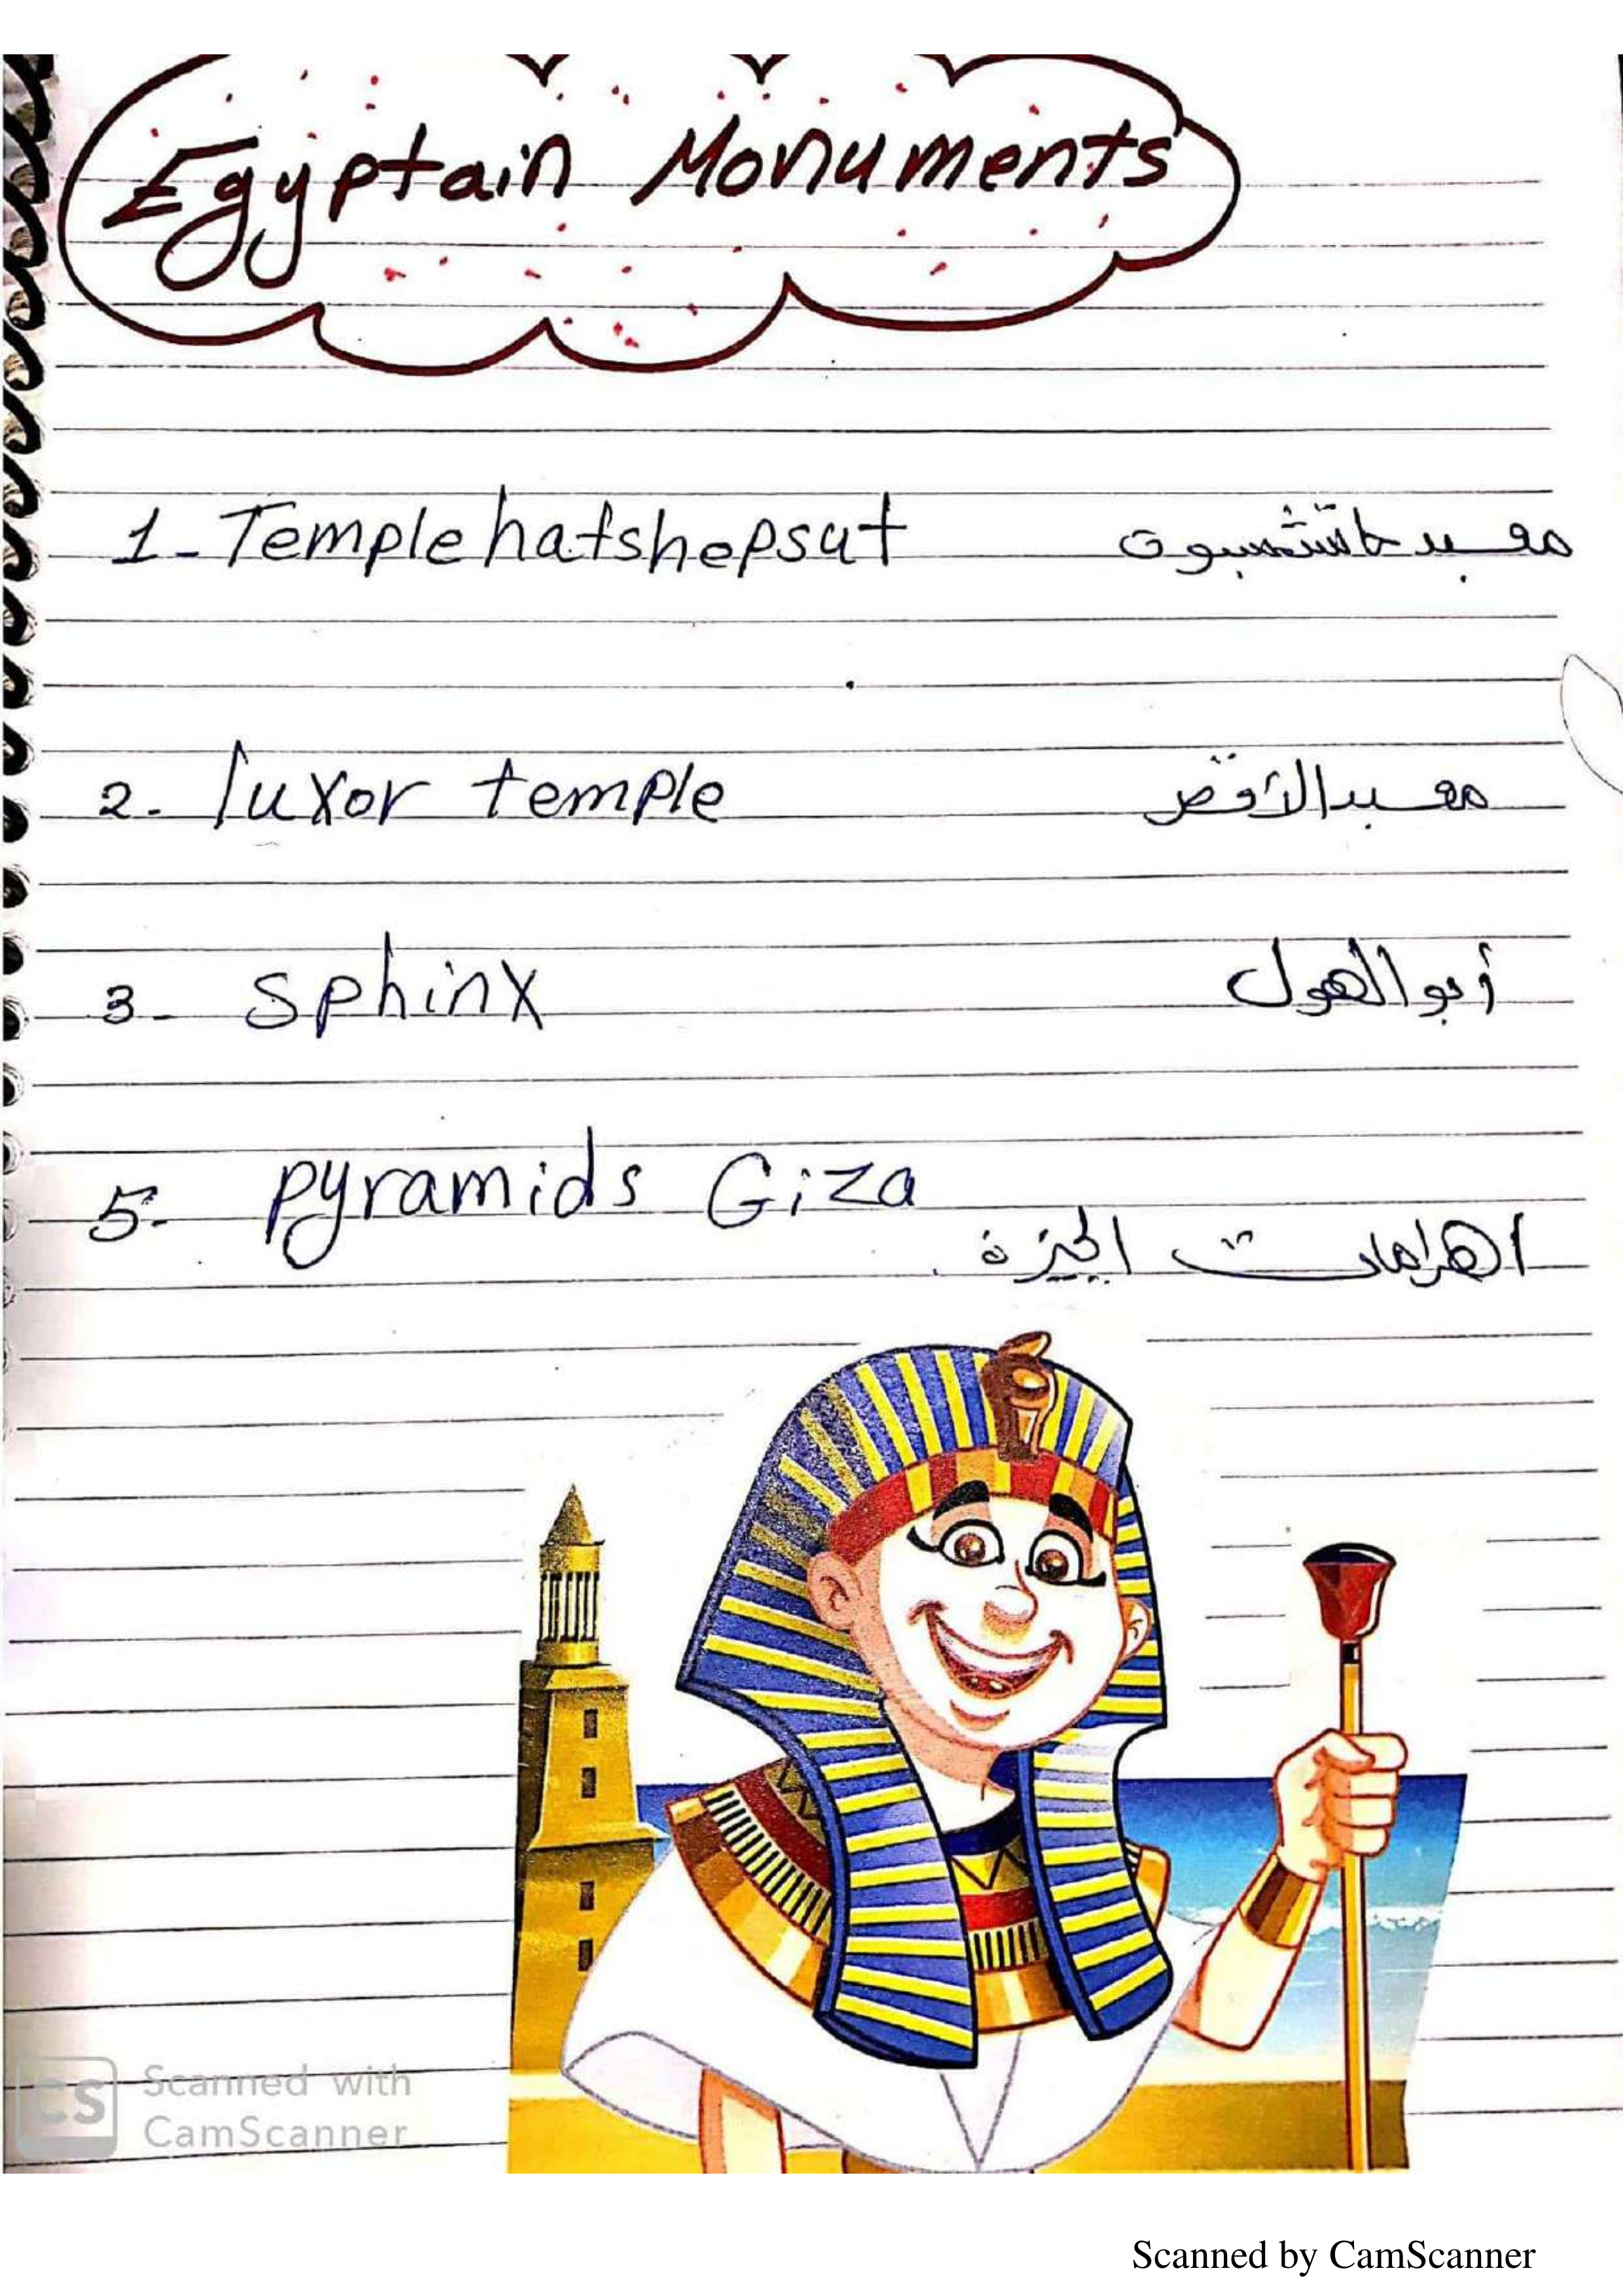 Egyptain Monuments
1- Temple hatshepsut معبد حاتشبسوت
2. luxor temple معبد الأقصر
3- sphinx أبو الهول
5- pyramids Giza
اهرامات الجيزة
CS Scanned with
CamScanner
Scanned by CamScanner